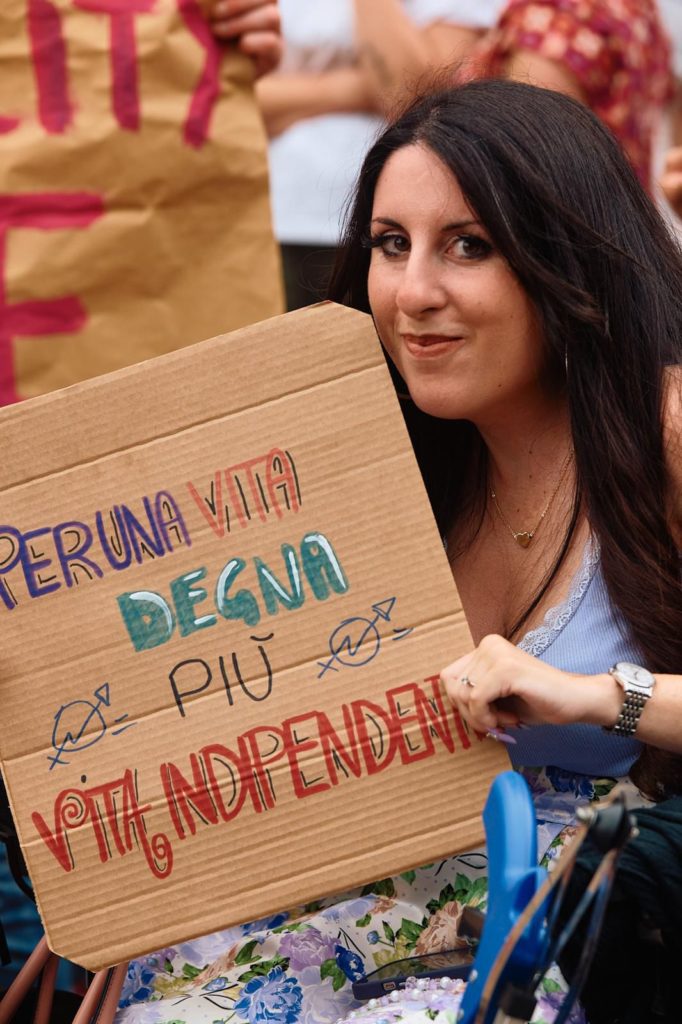 PER UNA VITA
DEGNA
PIÙ
VITA INDIPENDENT